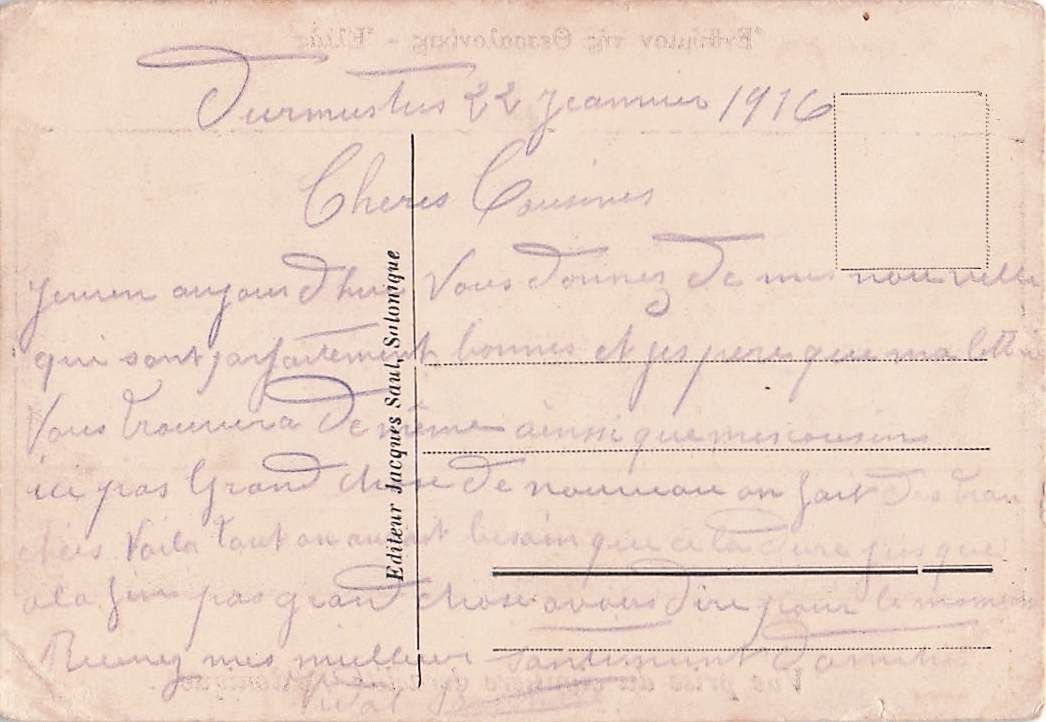 Durmustus 22 Jeanvier 1916
Cheres Cousines
aujourd'hui Vous donnez de mes nouvelle
qui sont parfaitement bonnes et jespere que ma lettre
Vous trouvera de même ainsi que mes cousins
ici pas Grand chose de nouveau on fait des tran
chées Voila tout on aurait besoin que cela dure jusque
a la fin pas grand chose a vous dire pour le moment
Recevez mes meilleur santiment d'amitié
Vidal
Editeur Jacques Saul, Salonique